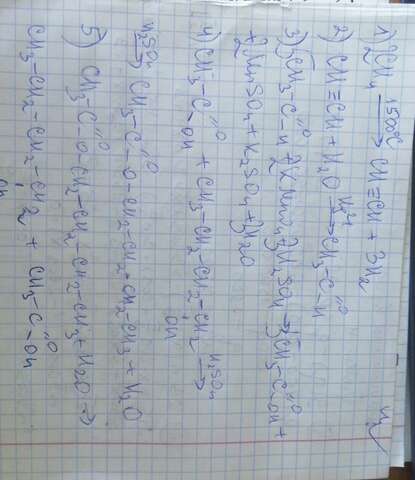 1) 2CH4 1500°C → CH≡CH + 3H2
2) CH≡CH + H2O Hg2+ → CH3-C=O-H
3) 5CH3-C=O-H + 2KMnO4 + 3H2SO4 → 5CH3-C=O-OH +
+ 2MnSO4 + K2SO4 + 3H2O
4) CH3-C=O-OH + CH3-CH2-CH2-CH2-OH H2SO4 →
H2SO4 → CH3-C=O-O-CH2-CH2-CH2-CH3 + H2O
5) CH3-C=O-O-CH2-CH2-CH2-CH3 + H2O →
CH3-CH2-CH2-CH2-OH + CH3-C=O-OH